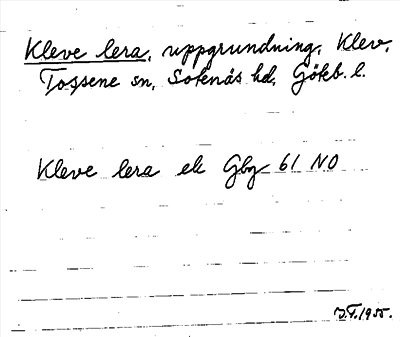 Kleve lera, uppgrundning, Klev,
Tossene sn, Sotenäs hd, Götb. l.
Kleve lera ek Gbg 61 NO
J.F. 1955.